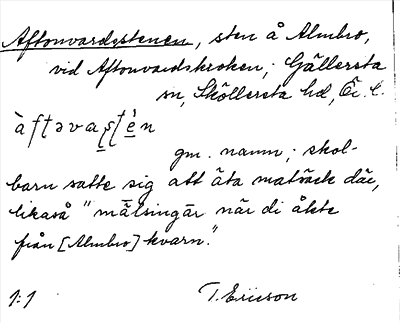 Aftonvardsstenen, sten å Almbro,
vid Aftonvardskroken; Gällersta
sn, Sköllersta hd, Ör. l.
àftəvaʂtè̱n
gm. namn; skol-
barn satte sig att äta matsäck där,
likaså "målsingär när di åkte
från [Almbro] kvarn."
1:1 T. Ericson